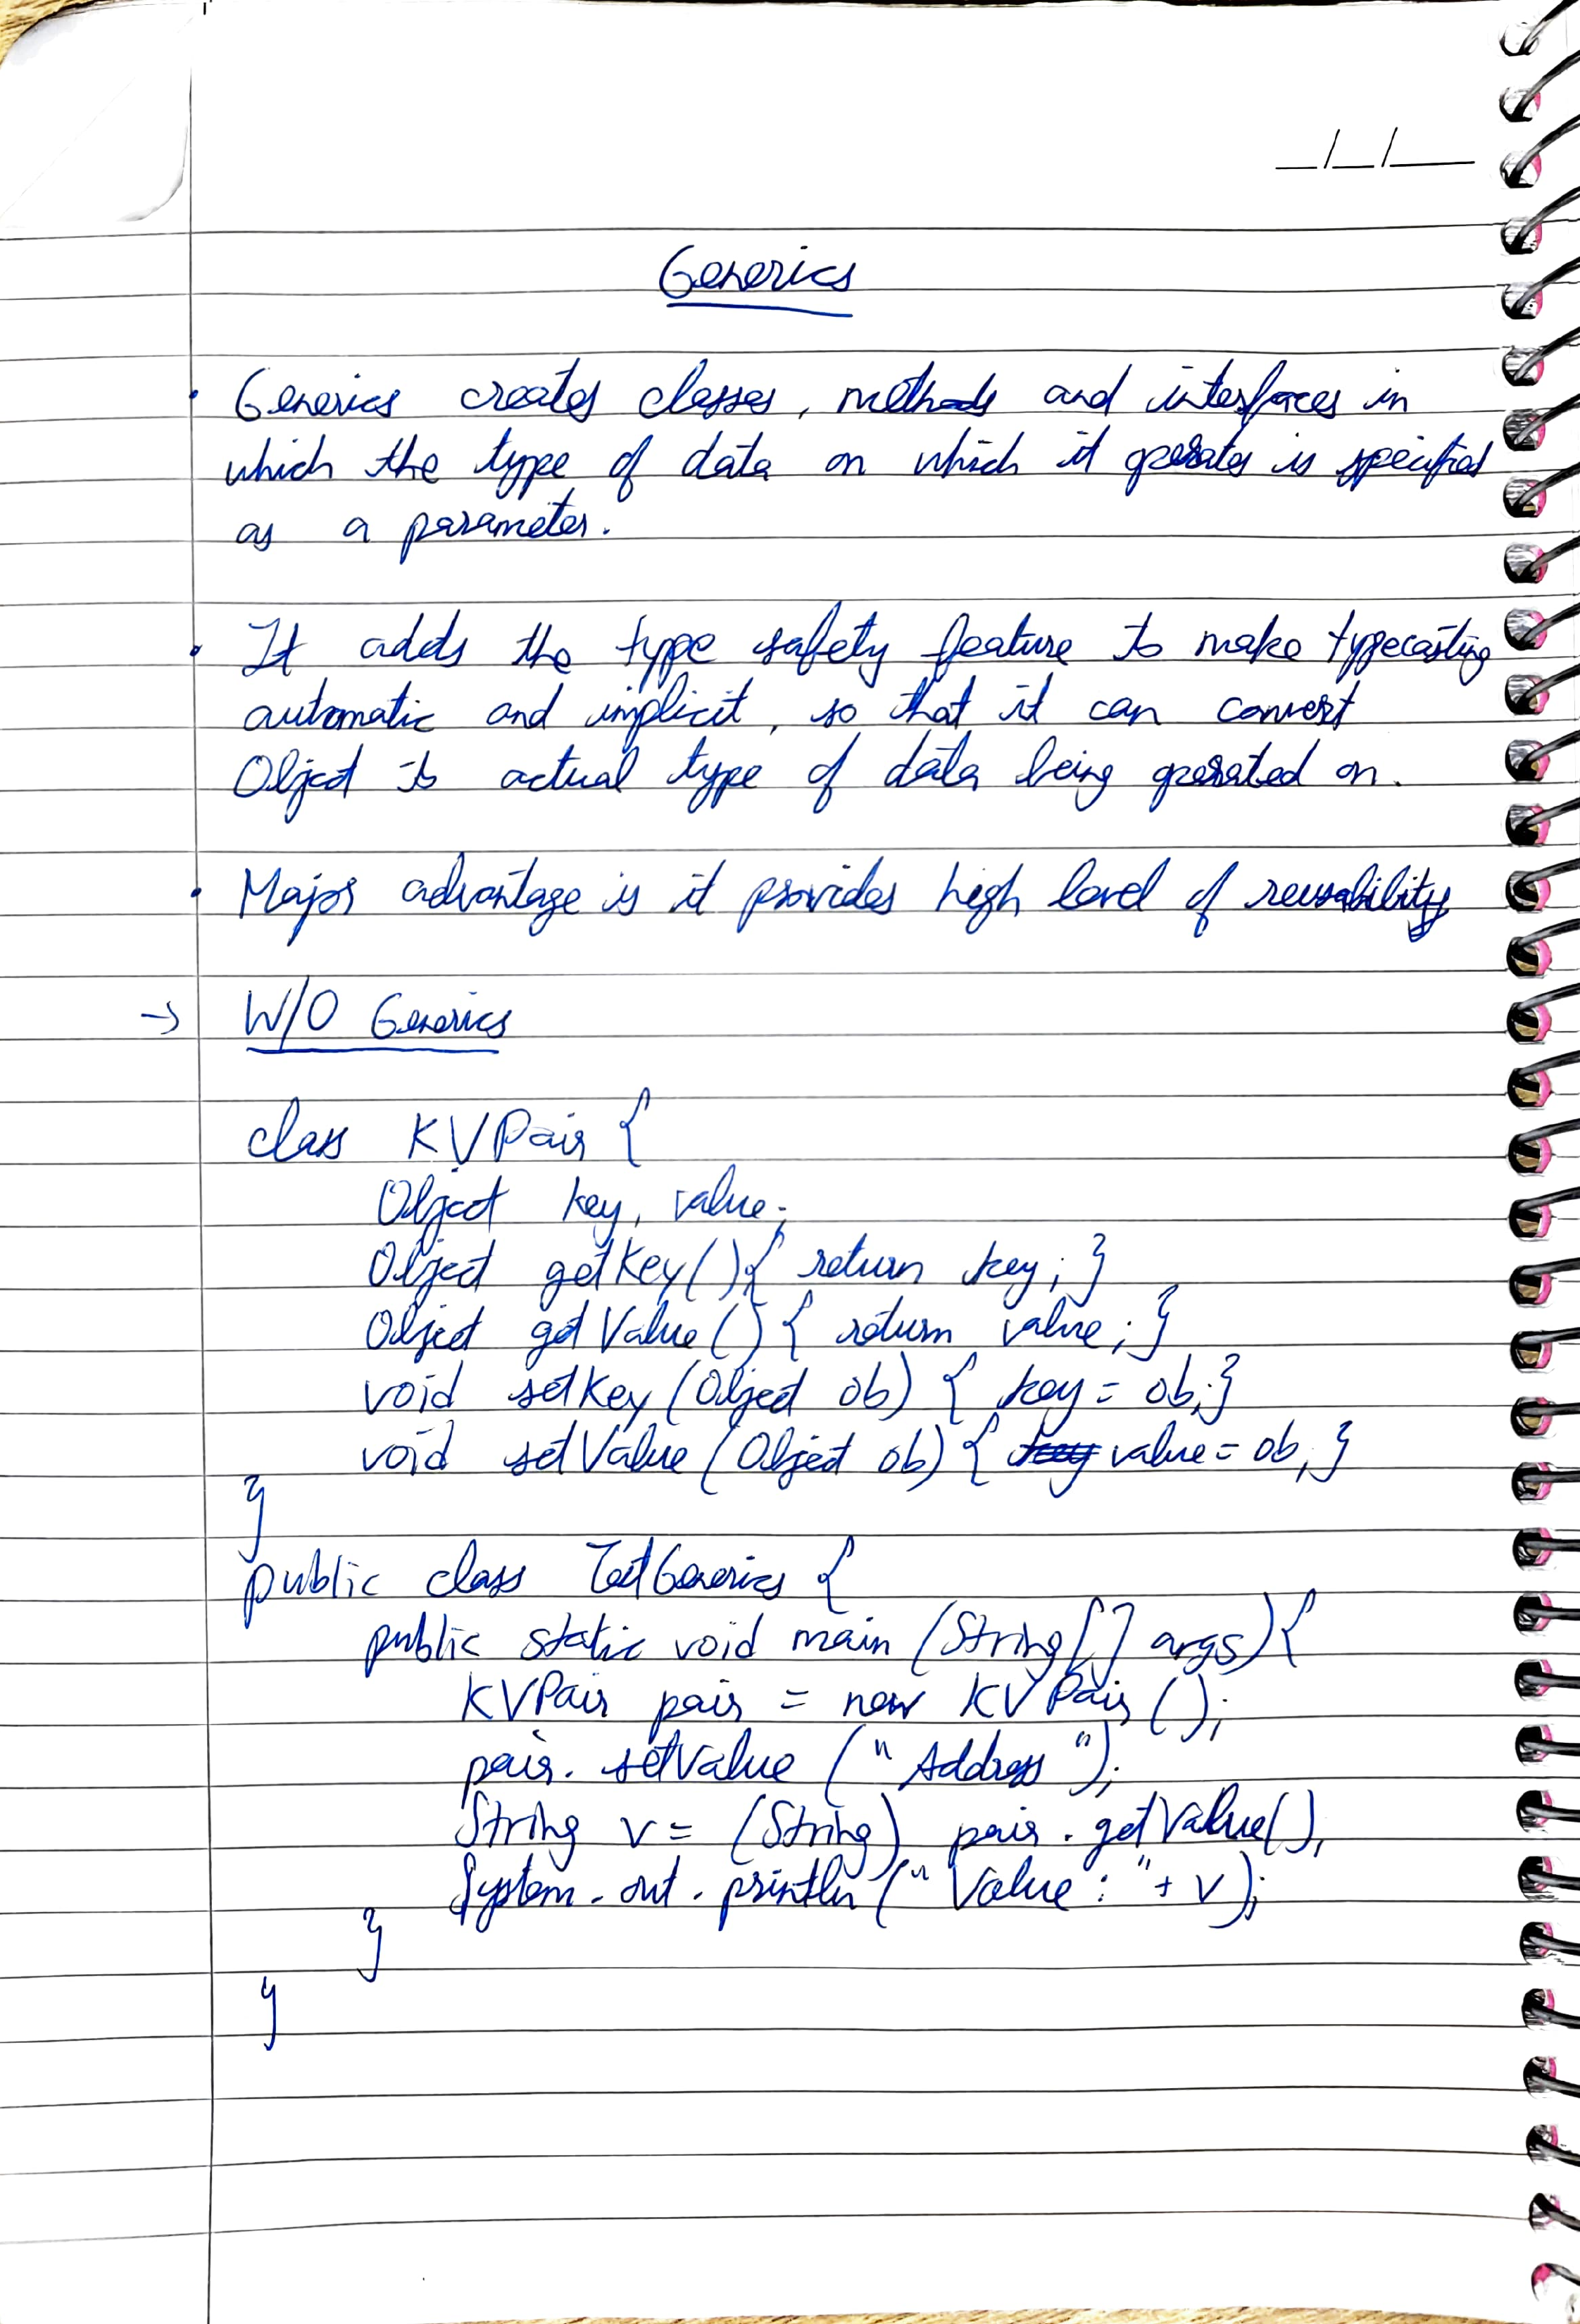 _/_/__
Generics
· Generics creates classes, methods and interfaces in
which the type of data on which it operates is specified
as a parameter.
· It adds the type safety feature to make typecasting
automatic and implicit, so that it can convert
Object to actual type of data being operated on.
· Major advantage is it provides high level of reusability
→ W/O Generics
class KVPair {
Object key, value;
Object getKey(){ return key; }
Object getValue(){ return value; }
void setKey(Object ob) { key = ob; }
void setValue(Object ob) { key value = ob; }
}
public class TestGenerics {
public static void main (String[] args){
KVPair pair = new KVPair();
pair.setValue ("Address");
String v = (String) pair.getValue();
System.out.println("Value : "+ v);
}
}